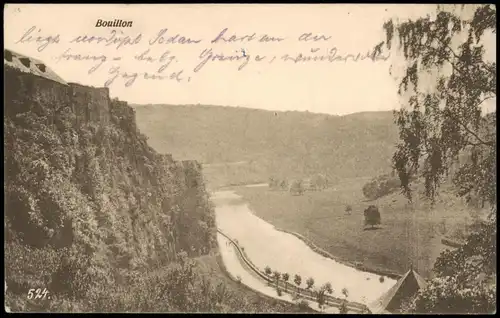 Bouillon
liegt nordöstl. Sedan hart an der
franz-belg. Grenze, wundervolle
Gegend,
524.